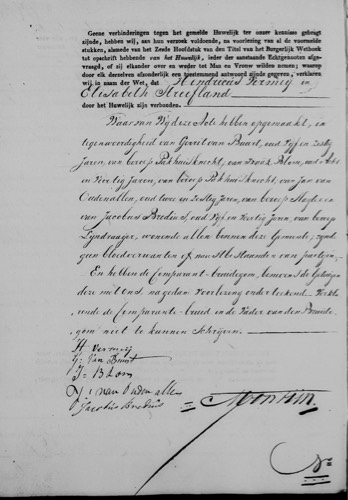 Geene verhinderingen tegen het gemelde Huwelijk ter onzer kennisse gebragt
zijnde, hebben wij, aan hun verzoek voldoende, na voorlezing van al de voormelde
stukken, alsmede van het Zesde Hoofdstuk van den Titel van het Burgerlijk Wetboek
tot opschrift hebbende van het Huwelijk, ieder der aanstaande Echtgenooten afge-
vraagd, of zij elkander over en weder tot Man en Vrouw wilden nemen; waarop
door elk derzelven afzonderlijk een toestemmend antwoord zijnde gegeven, verklaren
wij in naam der Wet, dat Hendricus Vermeij en
Elisabeth Streefland
door het Huwelijk zijn verbonden.
Waarvan Wij deze Acte hebben opgemaakt, in
tegenwoordigheid van Gerrit van Buurt, oud Vijf en zestig
Jaren, van beroep Pakhuisknecht, van Blom, oud
en Veertig Jaren, van beroep Pakhuisknecht, van Jan van
Oudenallen, oud twee en zestig Jaren, van beroep
en van Jacobus Bredius, oud Vijf en Veertig Jaren, van beroep
Lijndraaijer, wonende allen binnen deze Gemeente, zynde
geen Bloedverwanten of Aanstaanden van partyen
En hebben de Comparant-bruidegom, benevens de Getuigen
deze met ons, na gedane voorlezing onderteekend. Verkla
rende de Comparante-bruid en de Vader van den Bruide
gom niet te kunnen Schrijven.
H Vermeij
G: Van Buurt
J= Blom
J: van Ouden allen
Jacobus Bredius